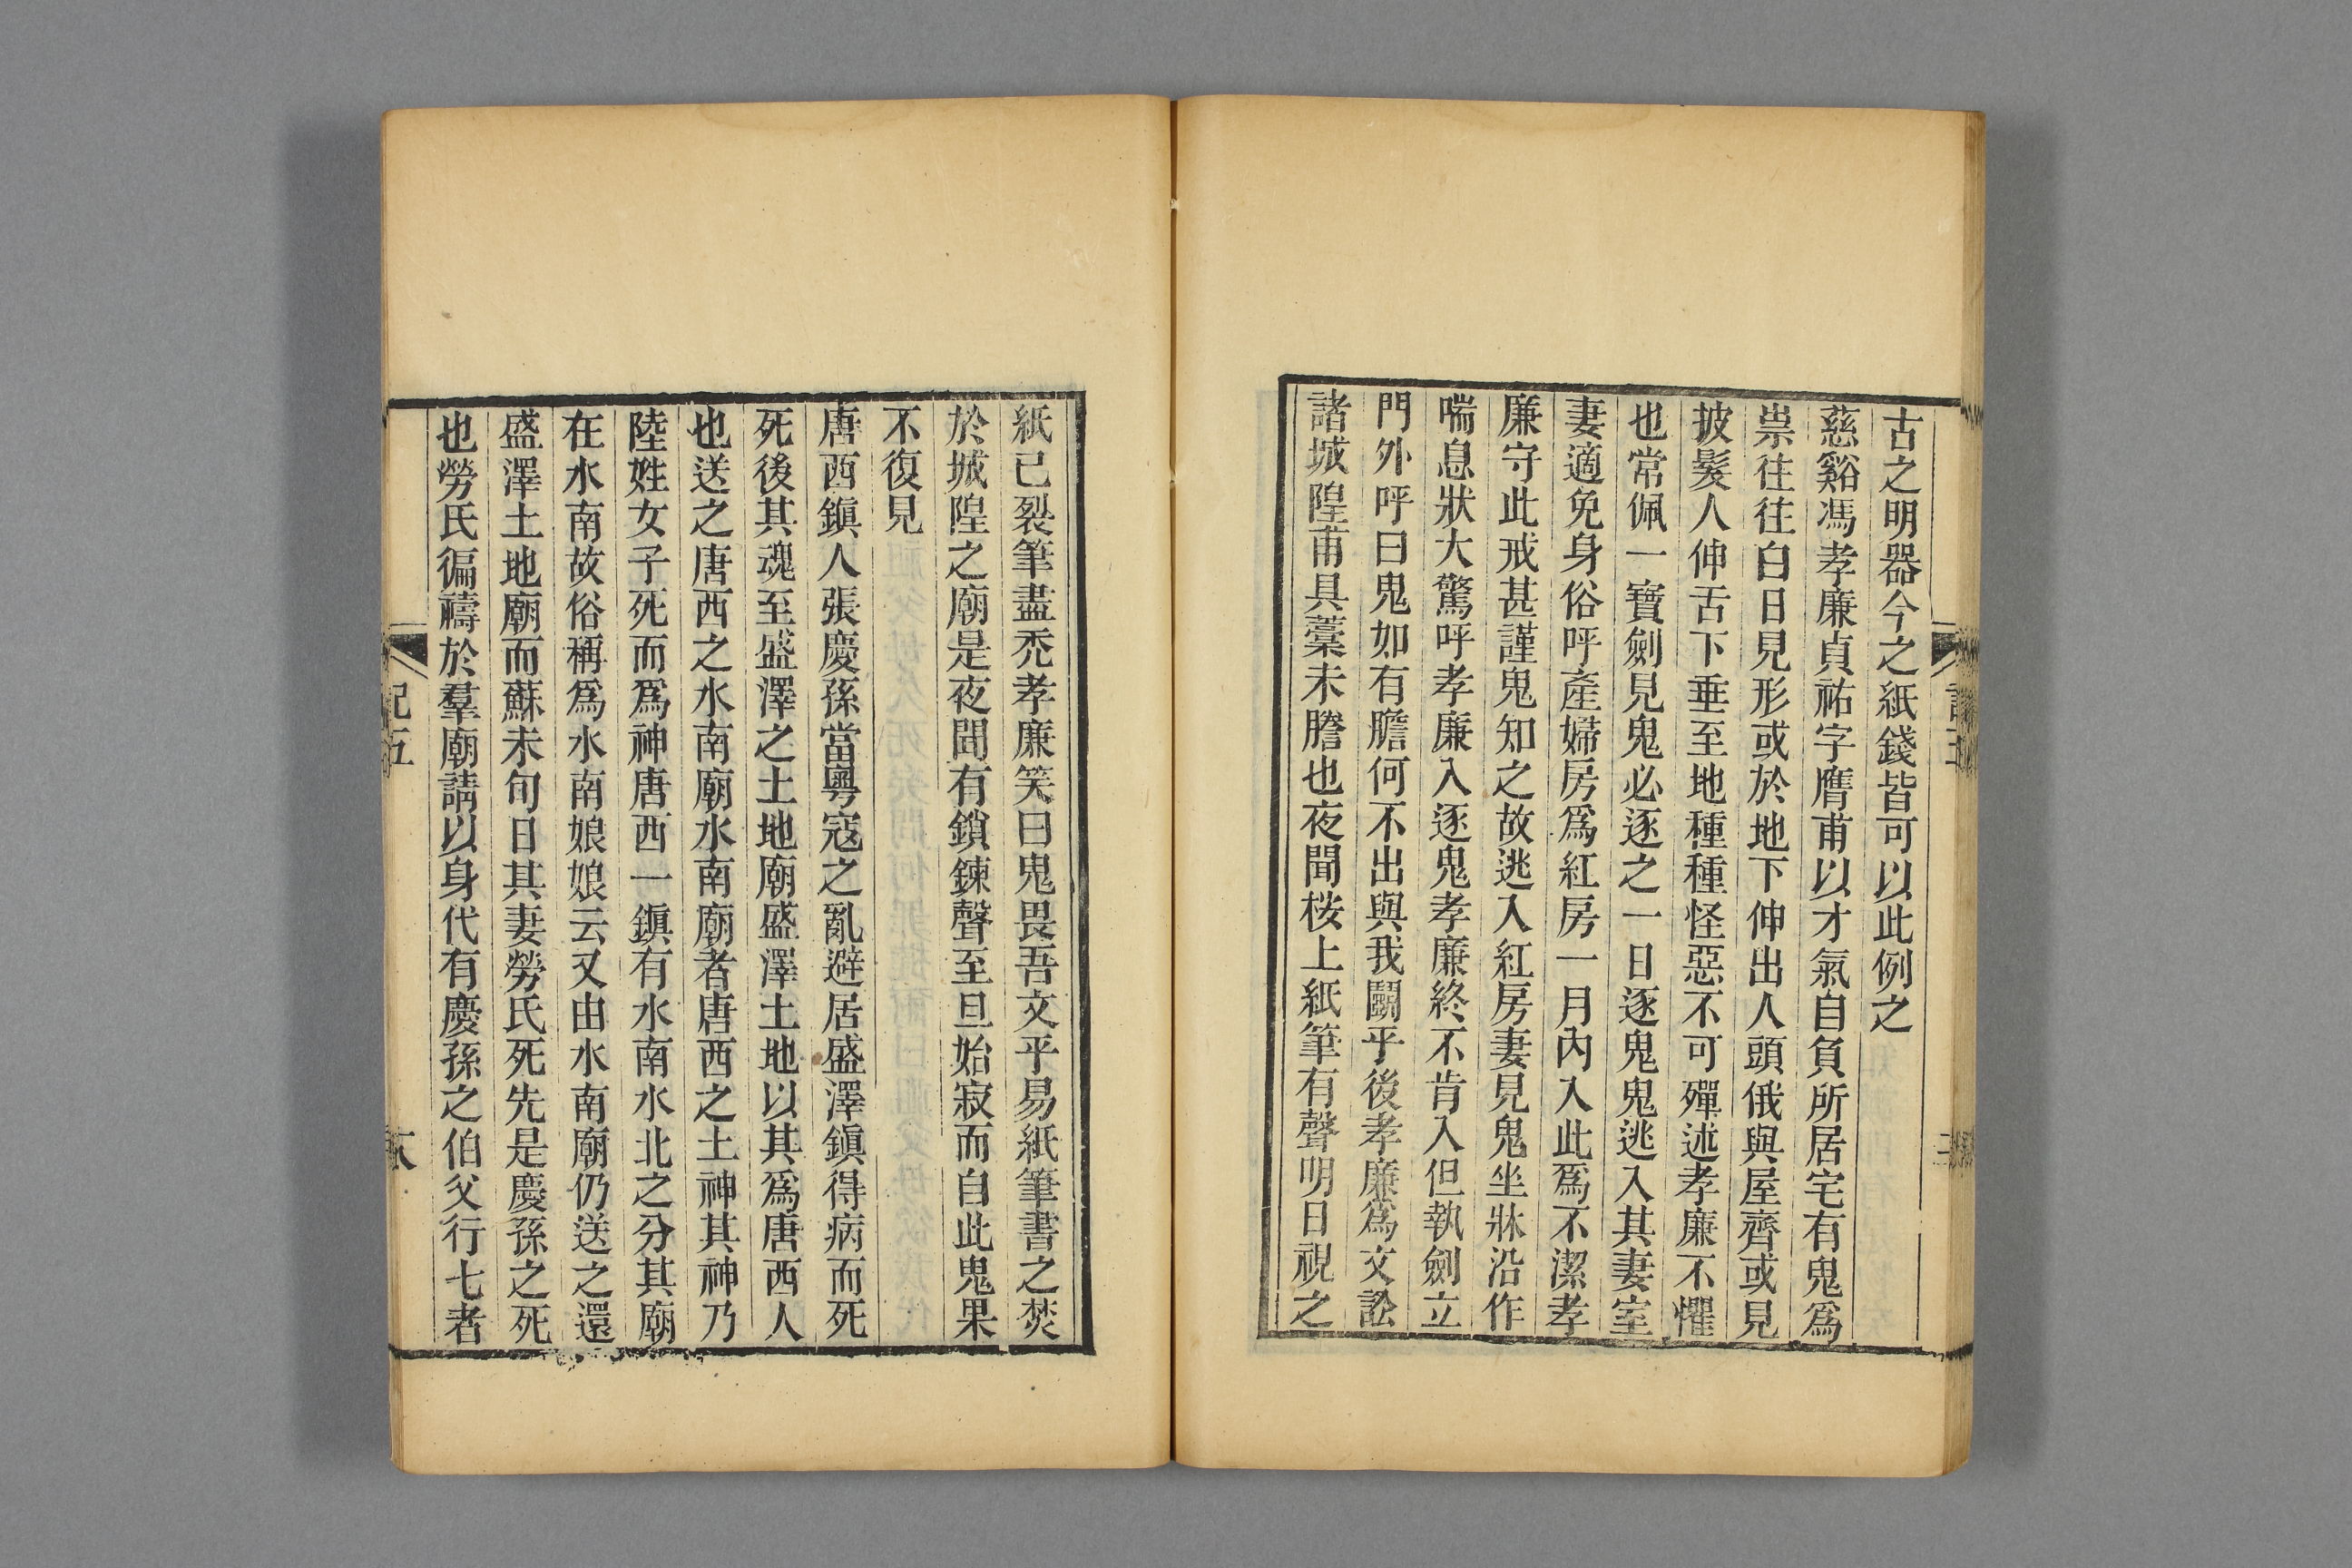 古之明器今之紙錢皆可以此例之
慈谿馮孝廉貞祐字膺甫以才氣自負所居宅有鬼爲
祟往往白日見形或於地下伸出人頭俄與屋齊或見
披髮人伸舌下垂至地種種怪惡不可殫述孝廉不懼
也常佩一寶劍見鬼必逐之一日逐鬼鬼逃入其妻室
妻適免身俗呼產婦房爲紅房一月內入此爲不潔孝
廉守此戒甚謹鬼知之故逃入紅房妻見鬼坐牀沿作
喘息狀大驚呼孝廉入逐鬼孝廉終不肯入但執劍立
門外呼曰鬼如有膽何不出與我鬬乎後孝廉爲文訟
諸城隍甫具藁未謄也夜聞桉上紙筆有聲明日視之
紙已裂筆盡禿孝廉笑曰鬼畏吾文乎易紙筆書之焚
於城隍之廟是夜聞有鎖鍊聲至旦始寂而自此鬼果
不復見
唐西鎭人張慶孫當粵寇之亂避居盛澤鎭得病而死
死後其魂至盛澤之土地廟盛澤土地以其爲唐西人
也送之唐西之水南廟水南廟者唐西之土神其神乃
陸姓女子死而爲神唐西一鎭有水南水北之分其廟
在水南故俗稱爲水南娘娘云又由水南廟仍送之還
盛澤土地廟而蘇未旬日其妻勞氏死先是慶孫之死
也勞氏徧禱於羣廟請以身代有慶孫之伯父行七者
記五